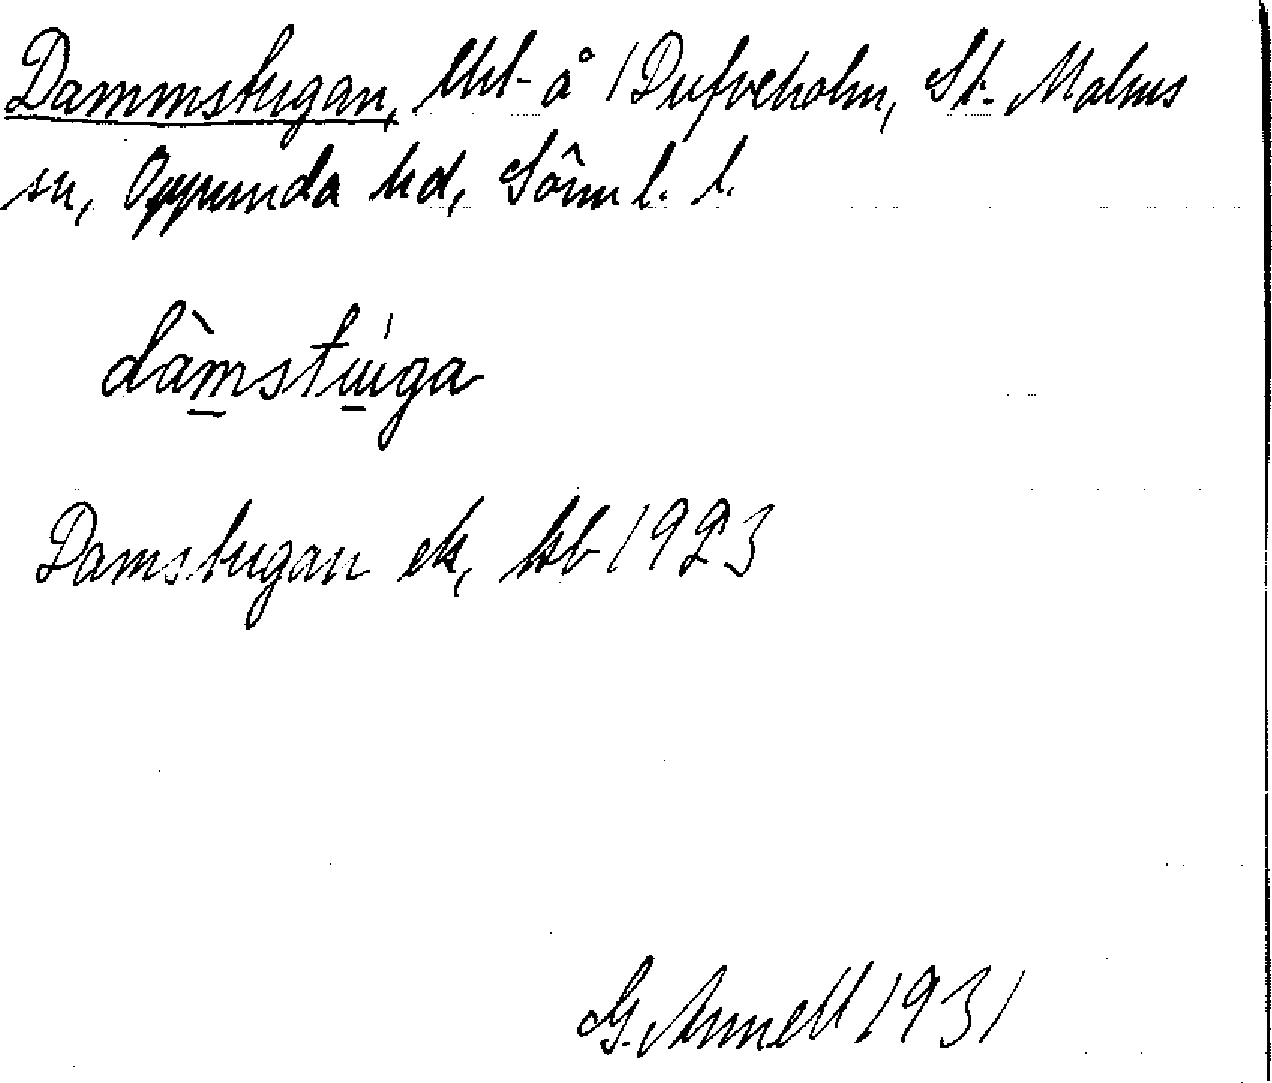 Dammstugan, lht å 1 Dufveholm, St. Malms
sn, Oppunda hd, Sörml. l.
dàmstùga
Damstugan ek, kb 1923
G. Annell 1931